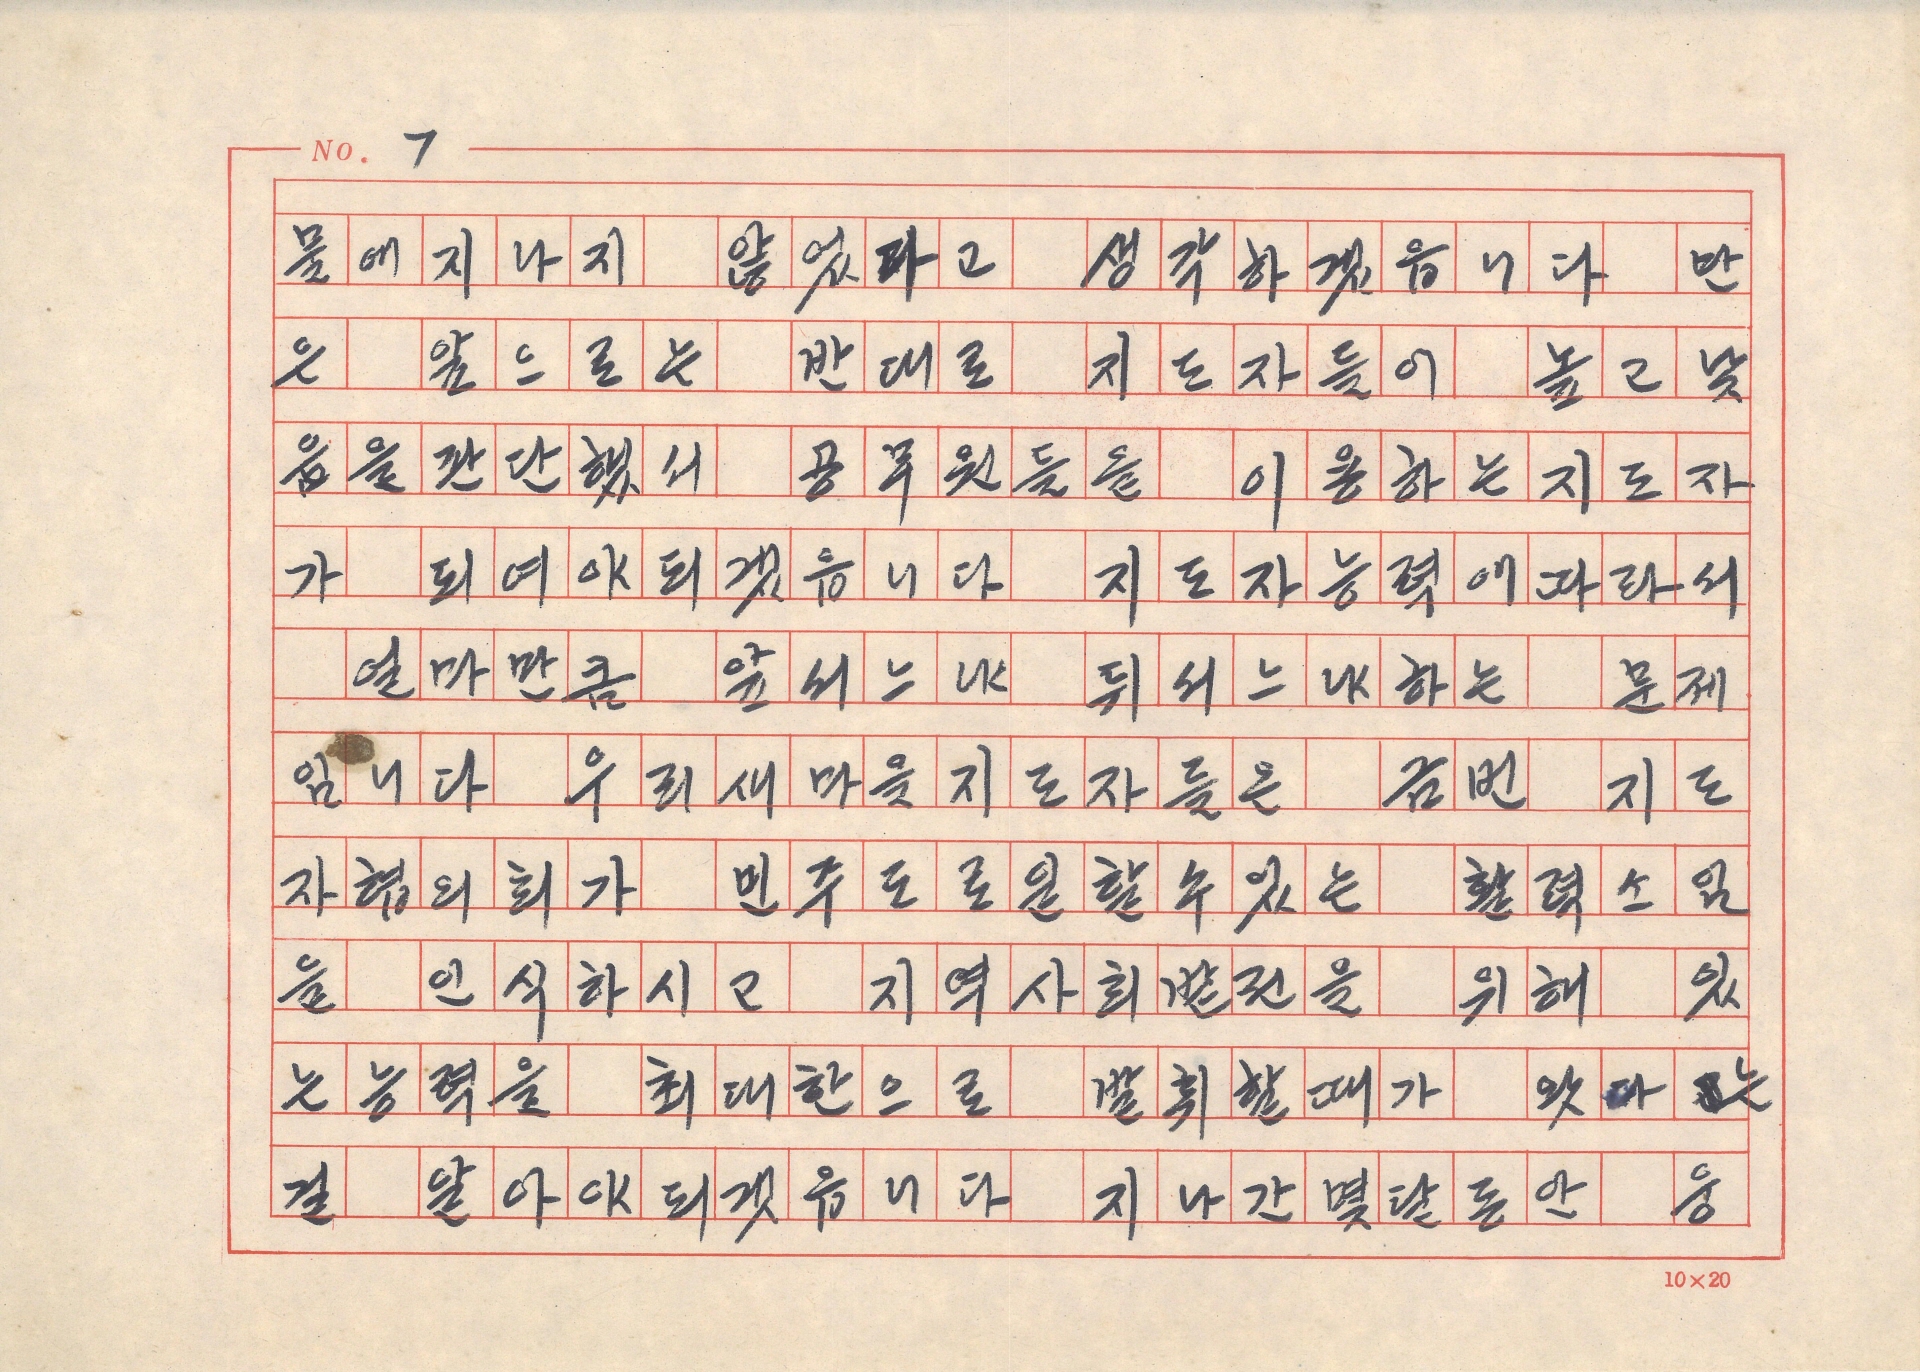 No. 7
물에지나지 않었다고 생각하겠읍니다 만
은 앞으로는 반대로 지도자들이 높고 낮
음을 판단했서 공무원들을 이용하는지도자
가 되여야되겠읍니다 지도자능력에따라서
얼마만큼 앞서느냐 뒤서느냐하는 문제
임니다 우리새마을지도자들은 금번 지도
자협의회가 민주도로일할수있는 활력소임
을 인식하시고 지역사회발전을 위해 있
는능력을 최대한으로 발휘할때가 왓다는
걸 알아야되겟읍니다 지나간몇달동안 웅
10×20